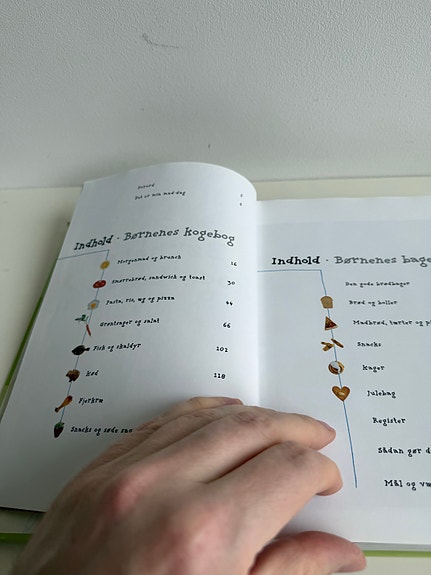 Forord
Det er min mad-dag
Indhold · Børnenes kogebog
Morgenmad og brunch 16
Smørrebrød, sandwich og toast 30
Pasta, ris, æg og pizza 44
Grøntsager og salat 66
Fisk og skaldyr 102
Kød 118
Fjerkræ
Snacks og søde
Indhold · Børnenes bage
Den gode brødbager
Brød og boller
Madbrød, tærter og
Snacks
Kager
Julebag
Register
Sådan gør d
Mål og